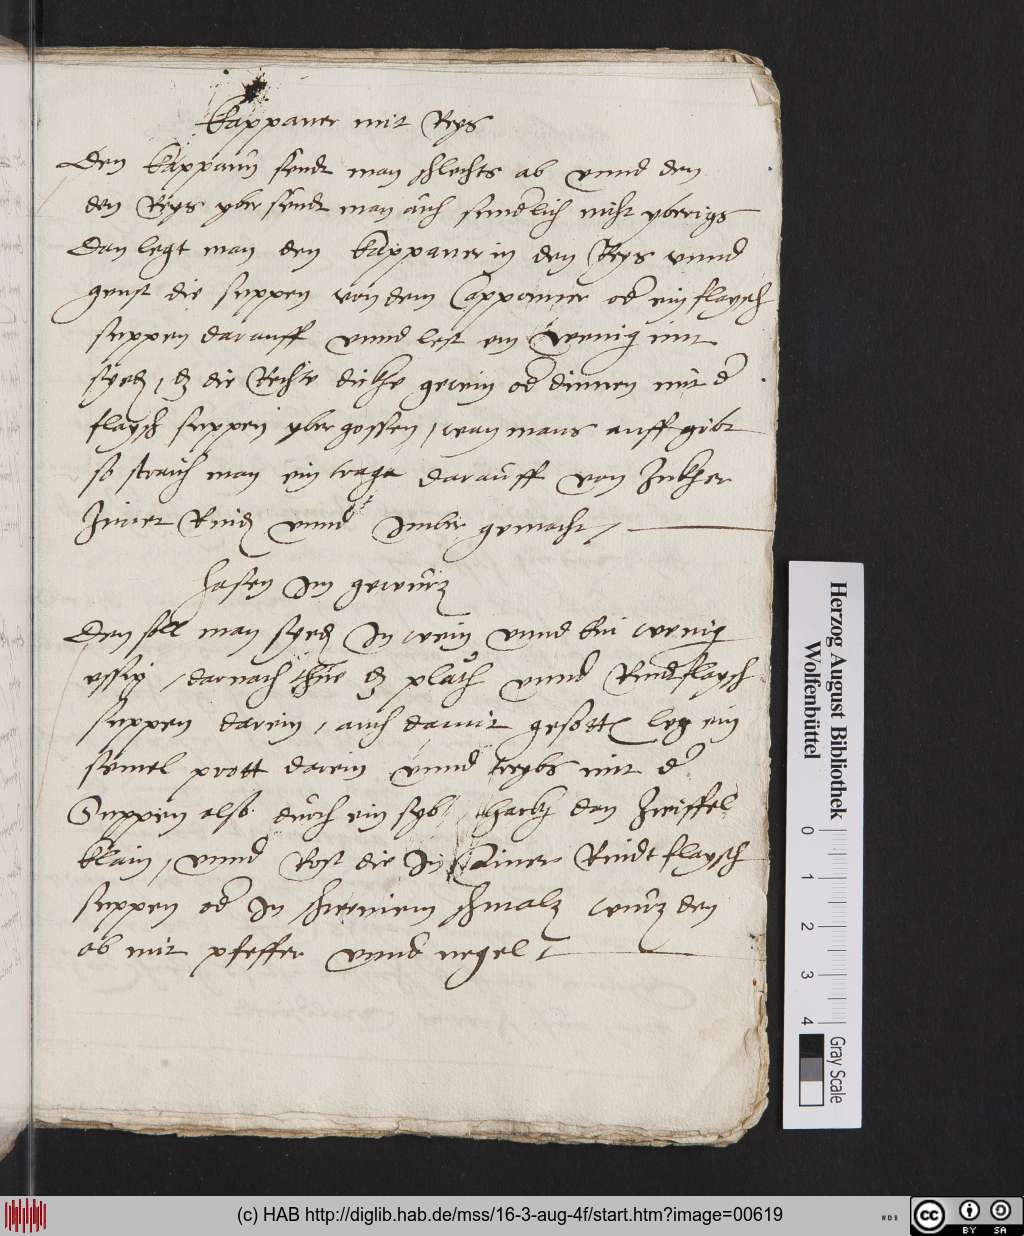 Kappaner mit Reys
Den kappaun seudt man schlechts ab vnnd den
den Reys yber seudt man auch senndlich nicht yberigs
Dan legt man den kappaner in den Reys vnnd
geust die suppen von dem Cappanner od ein flaysch
suppen darauff vnnd lest ein wenig mit
syed, dz die Rechte dickhe gewin od dinnen mit d
flaysch suppen yber gossen, wan mans auff gibt
so straich man ein trage darauff von Zukher
Zimet Rind vnnd Imber gemacht,
Hasen Im gewürz
Den soll man syed In wein vnnd ein wenig
essig, darnach thue dz plůth vnnd Rindflaysch
suppen darein, auch damit gesott leg ein
semel prott darein vnnd treybs mit d
Suppen also durch ein syb, hackh dan Zwiffel
klain, vnnd Rost die In ainer Rindtflaysch
suppen od In schmalz würz den
ab mit pfeffer vnnd negel
Herzog August Bibliothek
Wolfenbüttel
0 1 2 3 4
Gray Scale
(c) HAB http://diglib.hab.de/mss/16-3-aug-4f/start.htm?image=00619
WDB
cc BY SA